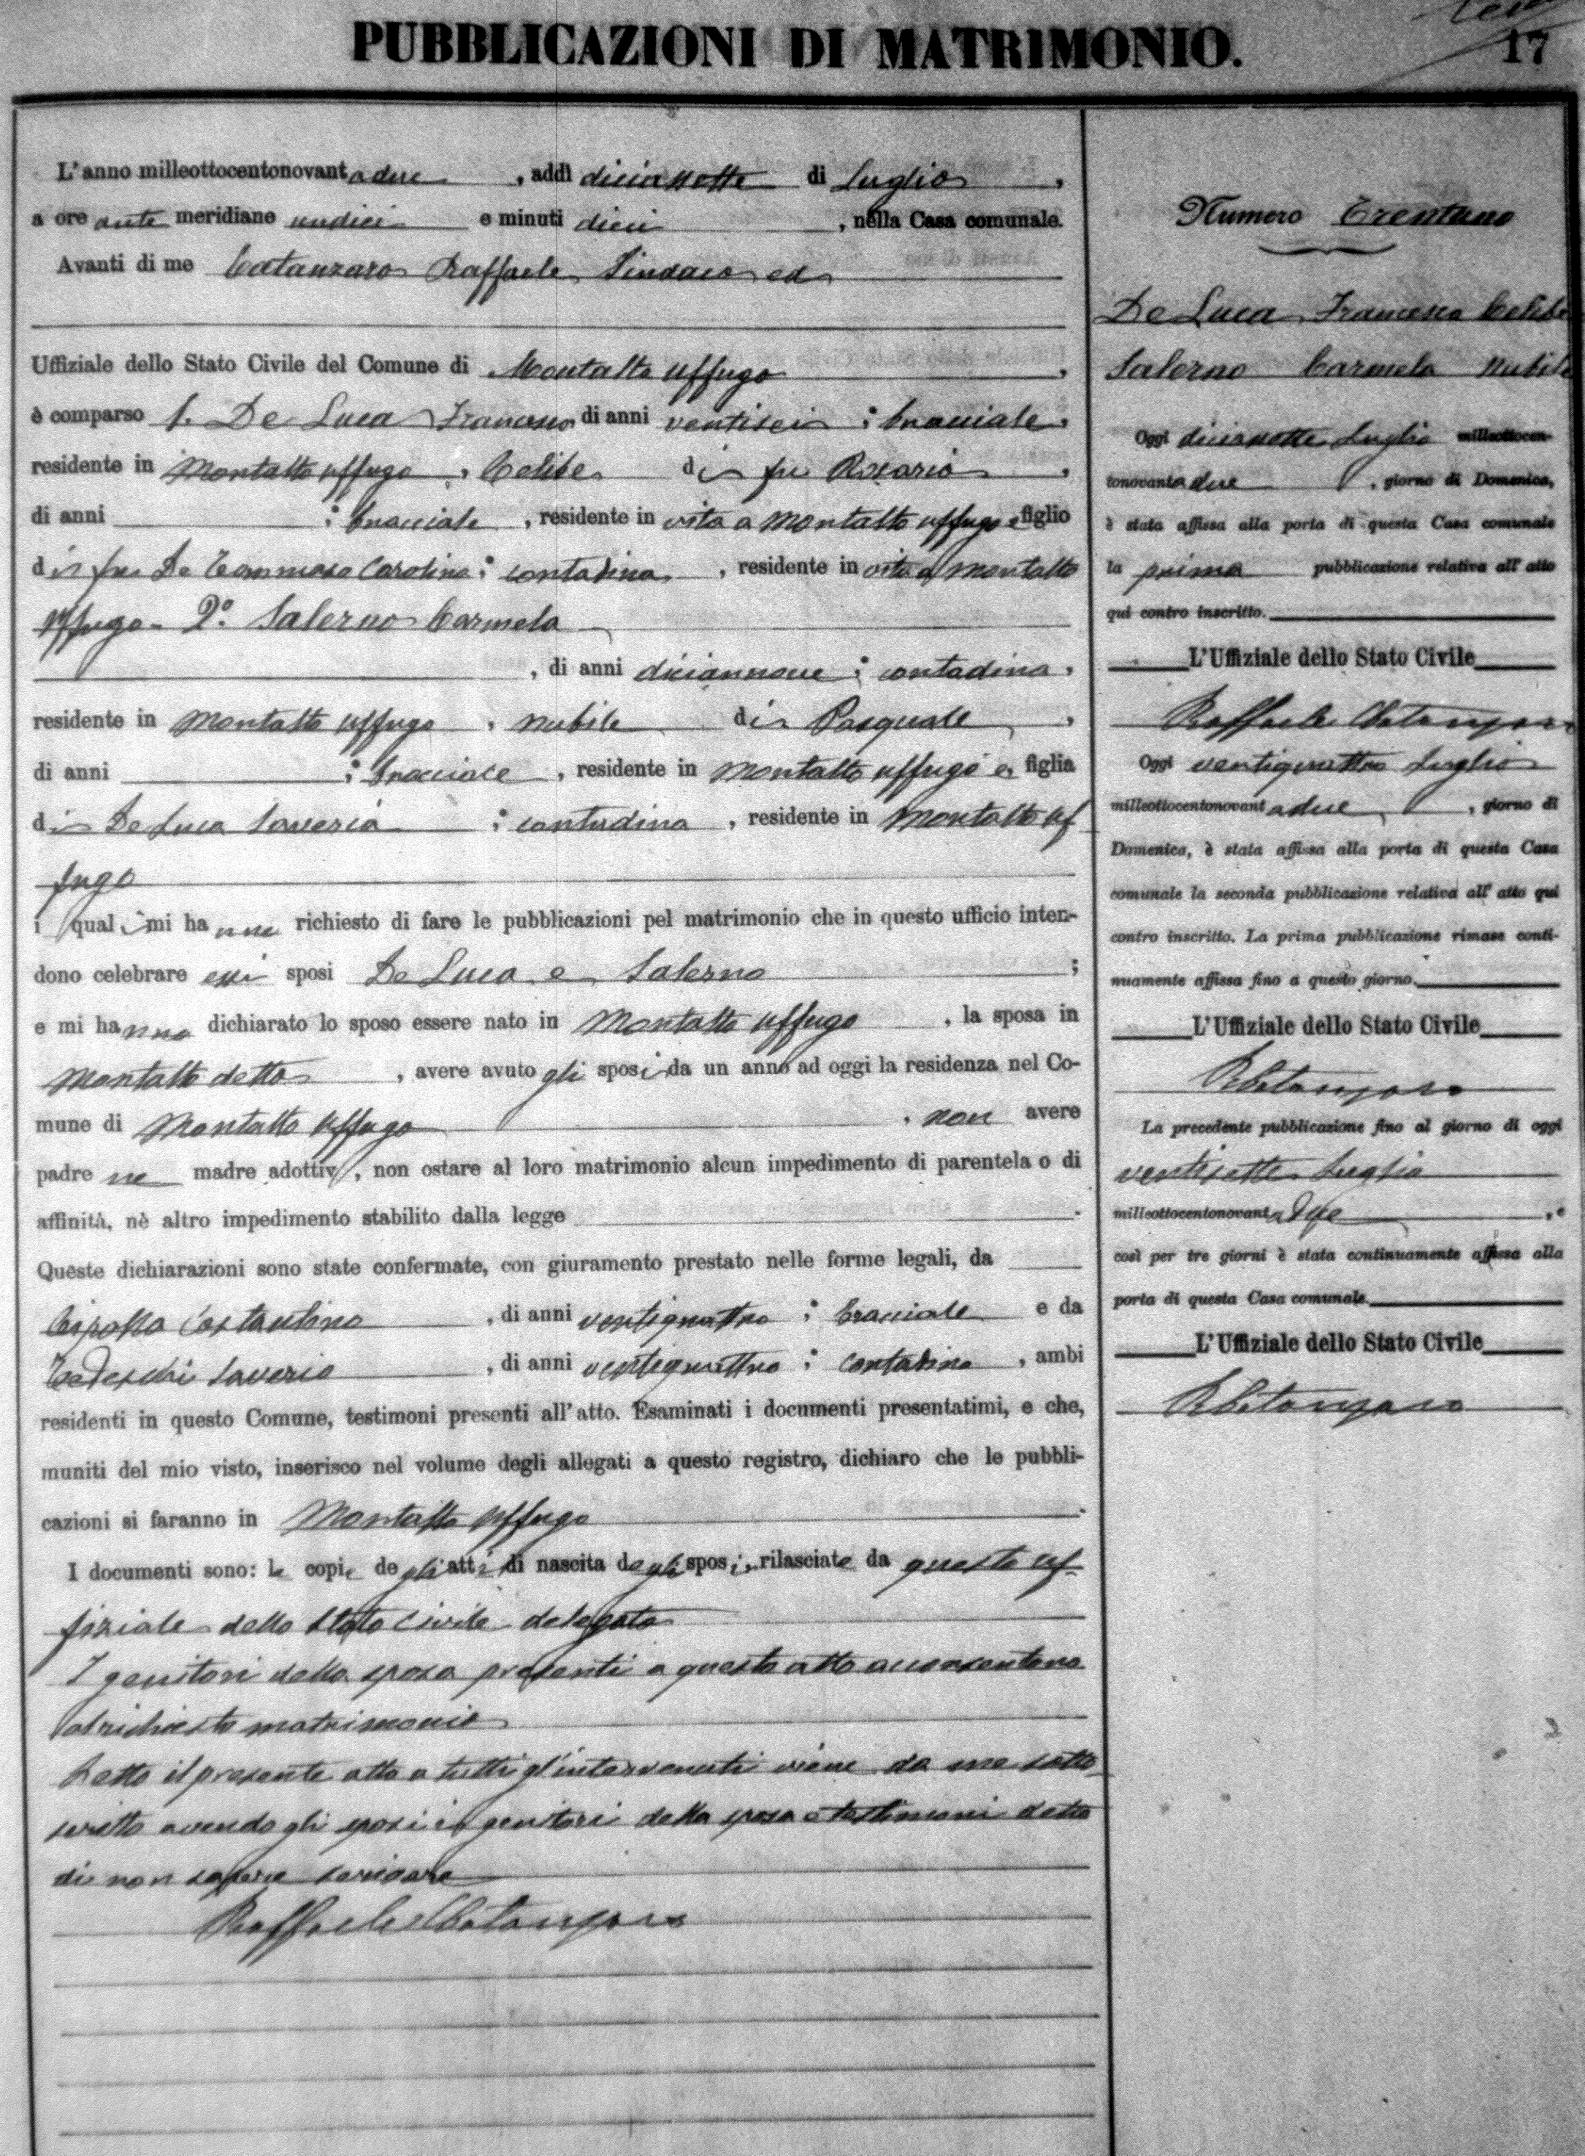 PUBBLICAZIONI DI MATRIMONIO.
17
L'anno milleottocentonovantadue, addì diciassette di Luglio,
a ore ante meridiane undici e minuti dieci, nella Casa comunale.
Avanti di me Catanzaro Raffaele Sindaco ed
Uffiziale dello Stato Civile del Comune di Montalto Uffugo,
è comparso 1. De Luca Francesco di anni ventisei; bracciale,
residente in Montalto Uffugo, Celibe di fu Rosario,
di anni ; bracciale, residente in vita a Montalto Uffugo e figlio
di fu De Tommaso Carolina; contadina, residente in vita a Montalto
Uffugo - 2º. Salerno Carmela
, di anni diciannove; contadina,
residente in Montalto Uffugo, nubile di Pasquale,
di anni ; bracciale, residente in Montalto Uffugo e figlia
di De Luca Saveria; contadina, residente in Montalto Uf
fugo
i quali mi hanno richiesto di fare le pubblicazioni pel matrimonio che in questo ufficio inten-
dono celebrare essi sposi De Luca e Salerno;
e mi hanno dichiarato lo sposo essere nato in Montalto Uffugo, la sposa in
Montalto detto, avere avuto gli sposi da un anno ad oggi la residenza nel Co-
mune di Montalto Uffugo, non avere
padre ne madre adottivi, non ostare al loro matrimonio alcun impedimento di parentela o di
affinità, nè altro impedimento stabilito dalla legge.
Queste dichiarazioni sono state confermate, con giuramento prestato nelle forme legali, da
Cipolla Costantino, di anni ventiquattro; bracciale e da
Tedeschi Saverio, di anni ventiquattro; contadino, ambi
residenti in questo Comune, testimoni presenti all'atto. Esaminati i documenti presentatimi, e che,
muniti del mio visto, inserisco nel volume degli allegati a questo registro, dichiaro che le pubbli-
cazioni si faranno in Montalto Uffugo.
I documenti sono: le copie degli atti di nascita degli sposi, rilasciate da questo uf-
fiziale dello Stato Civile delegato
I genitori della sposa presenti a questo atto acconsentono
al richiesto matrimonio
Letto il presente atto a tutti gl'intervenuti viene da me sotto-
scritto avendo gli sposi i genitori della sposa e testimoni detto
di non sapere scrivere
Raffaele Catanzaro
Numero Trentuno
De Luca Francesco Celibe
Salerno Carmela nubile
Oggi diciassette Luglio milleottocen-
tonovantadue, giorno di Domenica,
è stata affissa alla porta di questa Casa comunale
la prima pubblicazione relativa all'atto
qui contro inscritto.
L'Uffiziale dello Stato Civile
Raffaele Catanzaro
Oggi ventiquattro Luglio
milleottocentonovantadue, giorno di
Domenica, è stata affissa alla porta di questa Casa
comunale la seconda pubblicazione relativa all'atto qui
contro inscritto. La prima pubblicazione rimase conti-
nuamente affissa fino a questo giorno.
L'Uffiziale dello Stato Civile
R Catanzaro
La precedente pubblicazione fino al giorno di oggi
ventisette Luglio
milleottocentonovantadue, e
così per tre giorni è stata continuamente affissa alla
porta di questa Casa comunale.
L'Uffiziale dello Stato Civile
R Catanzaro